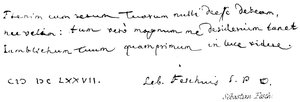 Etenim cum rerum Tuarum nulli deesse debeam,
nec velim: tum verò magnum me desiderium tenet
Iamblichum tuum quamprimum in luce videre.
CIↃ IↃC LXXVII. Seb. Feschius S. P. D.
Sebastian Fäsch